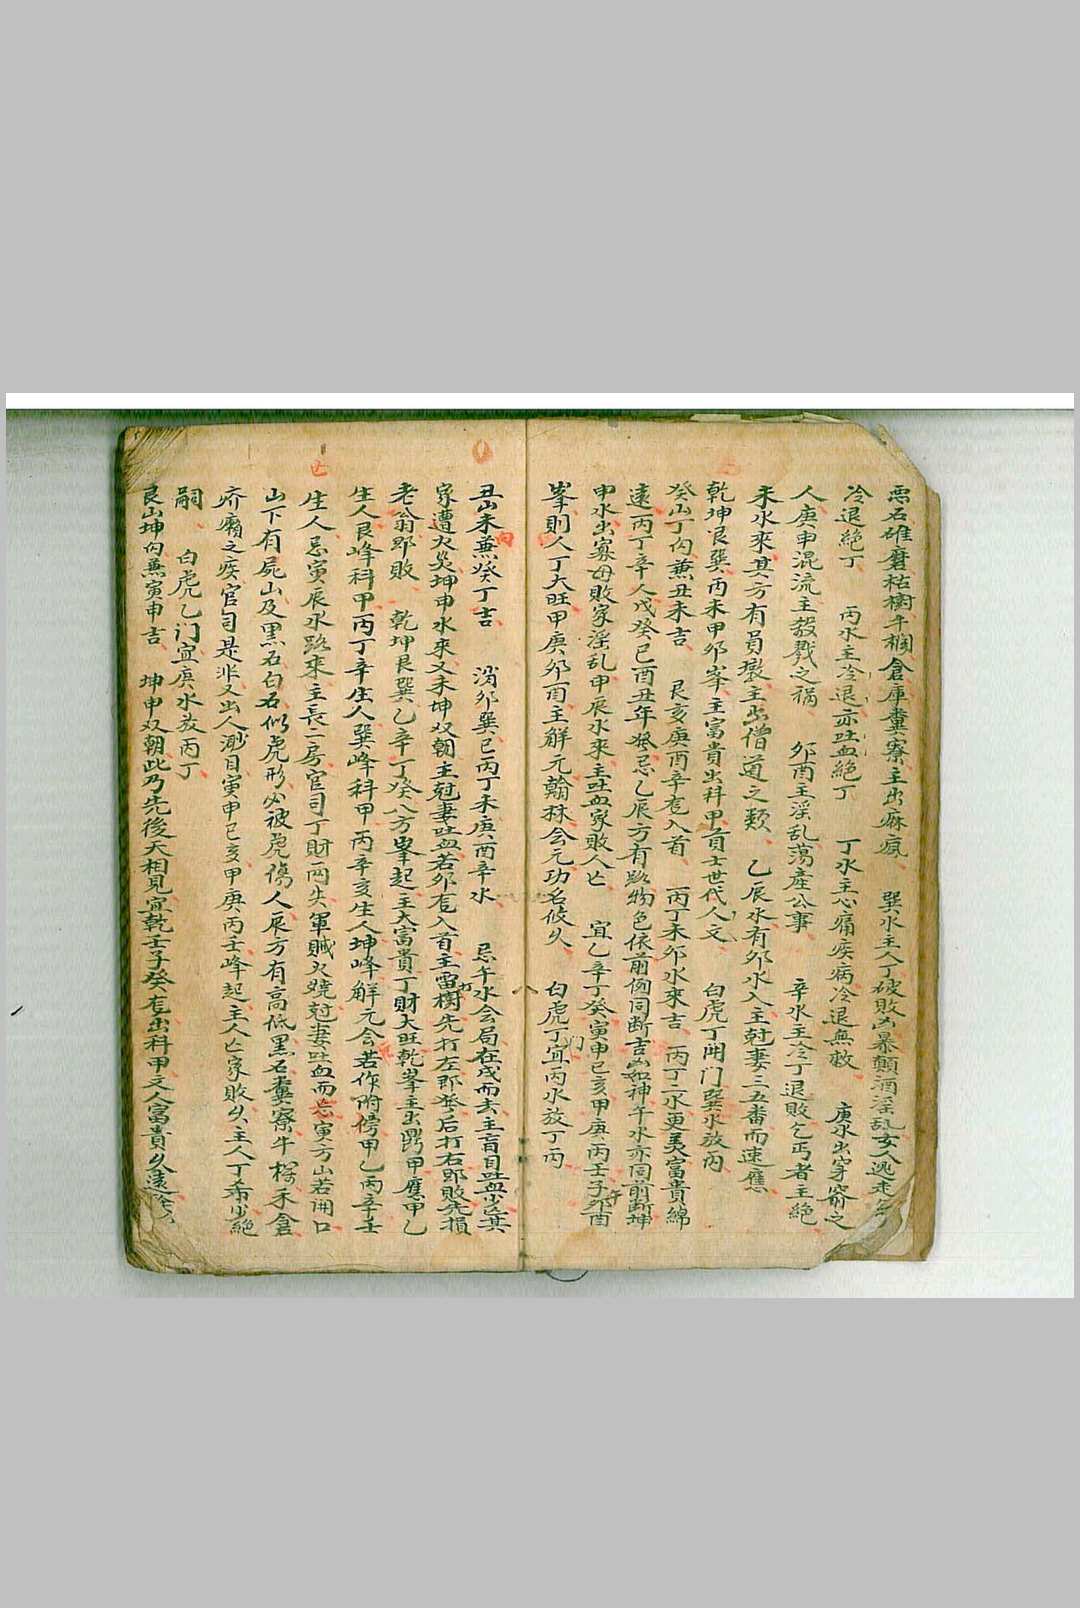 惡石碓磨枯樹牛欄倉庫糞寮主出麻瘋 巽水主人丁破敗凶暴顛酒淫乱女人逃走
冷退絕丁 丙水主冷退亦吐血絕丁 丁水主心痛疾病冷退無救 庚水出穿窬之
人庚申混流主殺戮之禍 卯酉主淫乱蕩產公事 辛水主冷丁退敗乞丐者主絕
未水來其方有員墩主出僧道之類 乙辰水有卯水入主尅妻三五番而速應
乾坤艮巽丙未甲卯峯主富貴出科甲員士世代人文 白虎丁開门巽水放丙
癸山丁向兼丑未吉 艮亥庚酉辛尨入首 丙丁未卯水來吉 丙丁二水更美富貴綿
遠丙丁辛人戊癸巳酉丑年發忌乙辰方有路物色依前例同断吉凶如神午水亦同前断坤
申水出寡母敗家淫乱甲辰水來主吐血家敗人亡 宜乙辛丁癸寅申巳亥甲庚丙壬子午卯酉
峯則人丁大旺甲庚卯酉主解元翰林会元功名攸久 白虎丁门宜丙水放丁丙
丑山未向兼癸丁吉 消卯巽巳丙丁未庚酉辛水 忌午水会局在戌而去主盲目吐血少亡其
家遭火災坤申水來又未坤双朝主尅妻吐血若卯尨入首主雷打樹先打左郎發后打右郎敗先損
老翁郎敗 乾坤艮巽乙辛丁癸八方峯起主大富貴丁財大旺乾峯主出鼎甲應甲乙
生人艮峰科甲丙丁辛生人巽峰科甲丙辛亥生人坤峰解元会若作附傍甲乙丙辛壬
生人忌寅辰水路來主長二房官司丁財兩失軍賊火燒尅妻吐血而亡寅方山若開口
山下有屍山及黑石白石似虎形必被虎傷人辰方有高低黑石糞寮牛椆禾倉
疥癩之疾官司是非又出人渺目寅申巳亥甲庚丙壬峰起主人亡家敗久主人丁希少絕
嗣 白虎乙门宜庚水放丙丁
艮山坤向兼寅申吉 坤申双朝此乃先後天相見宜乾壬子癸尨出科甲文人富貴久遠